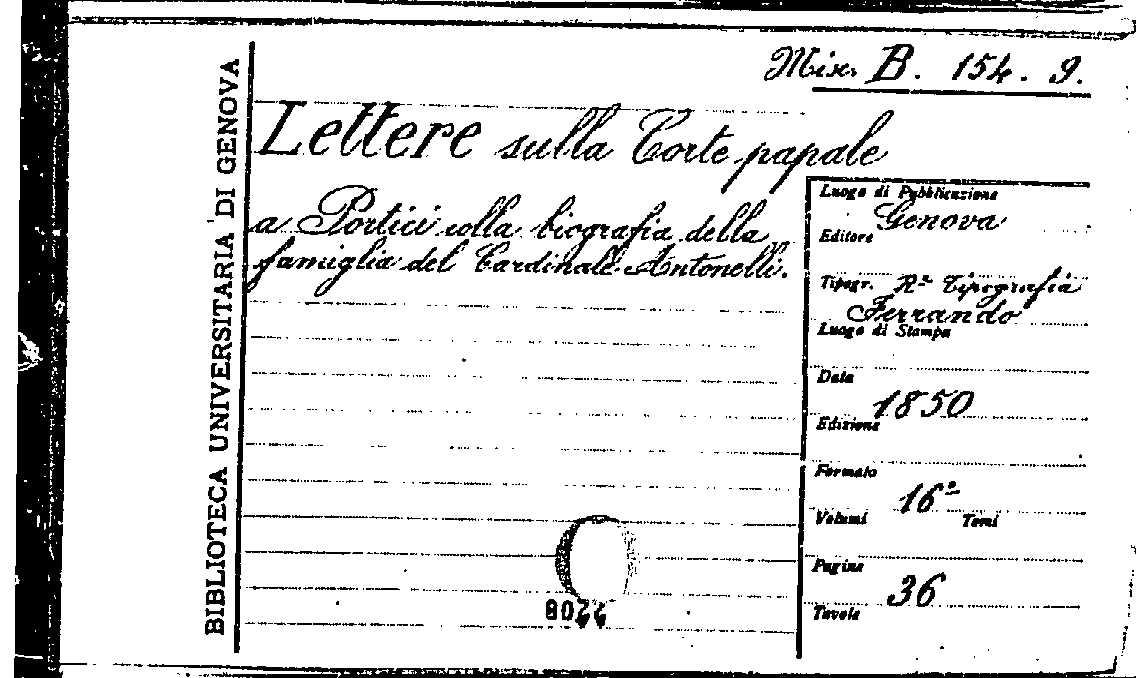 Misc. B. 154. 9.
BIBLIOTECA UNIVERSITARIA DI GENOVA
Lettere sulla Corte papale
a Portici colla biografia della
famiglia del Cardinale Antonelli.
Luogo di Pubblicazione
Genova
Editore
Tipogr. Rª Tipografia
Ferrando
Luogo di Stampa
Data
1850
Edizione
Formato
16º
Volumi Tomi
Pagine
36
Tavole